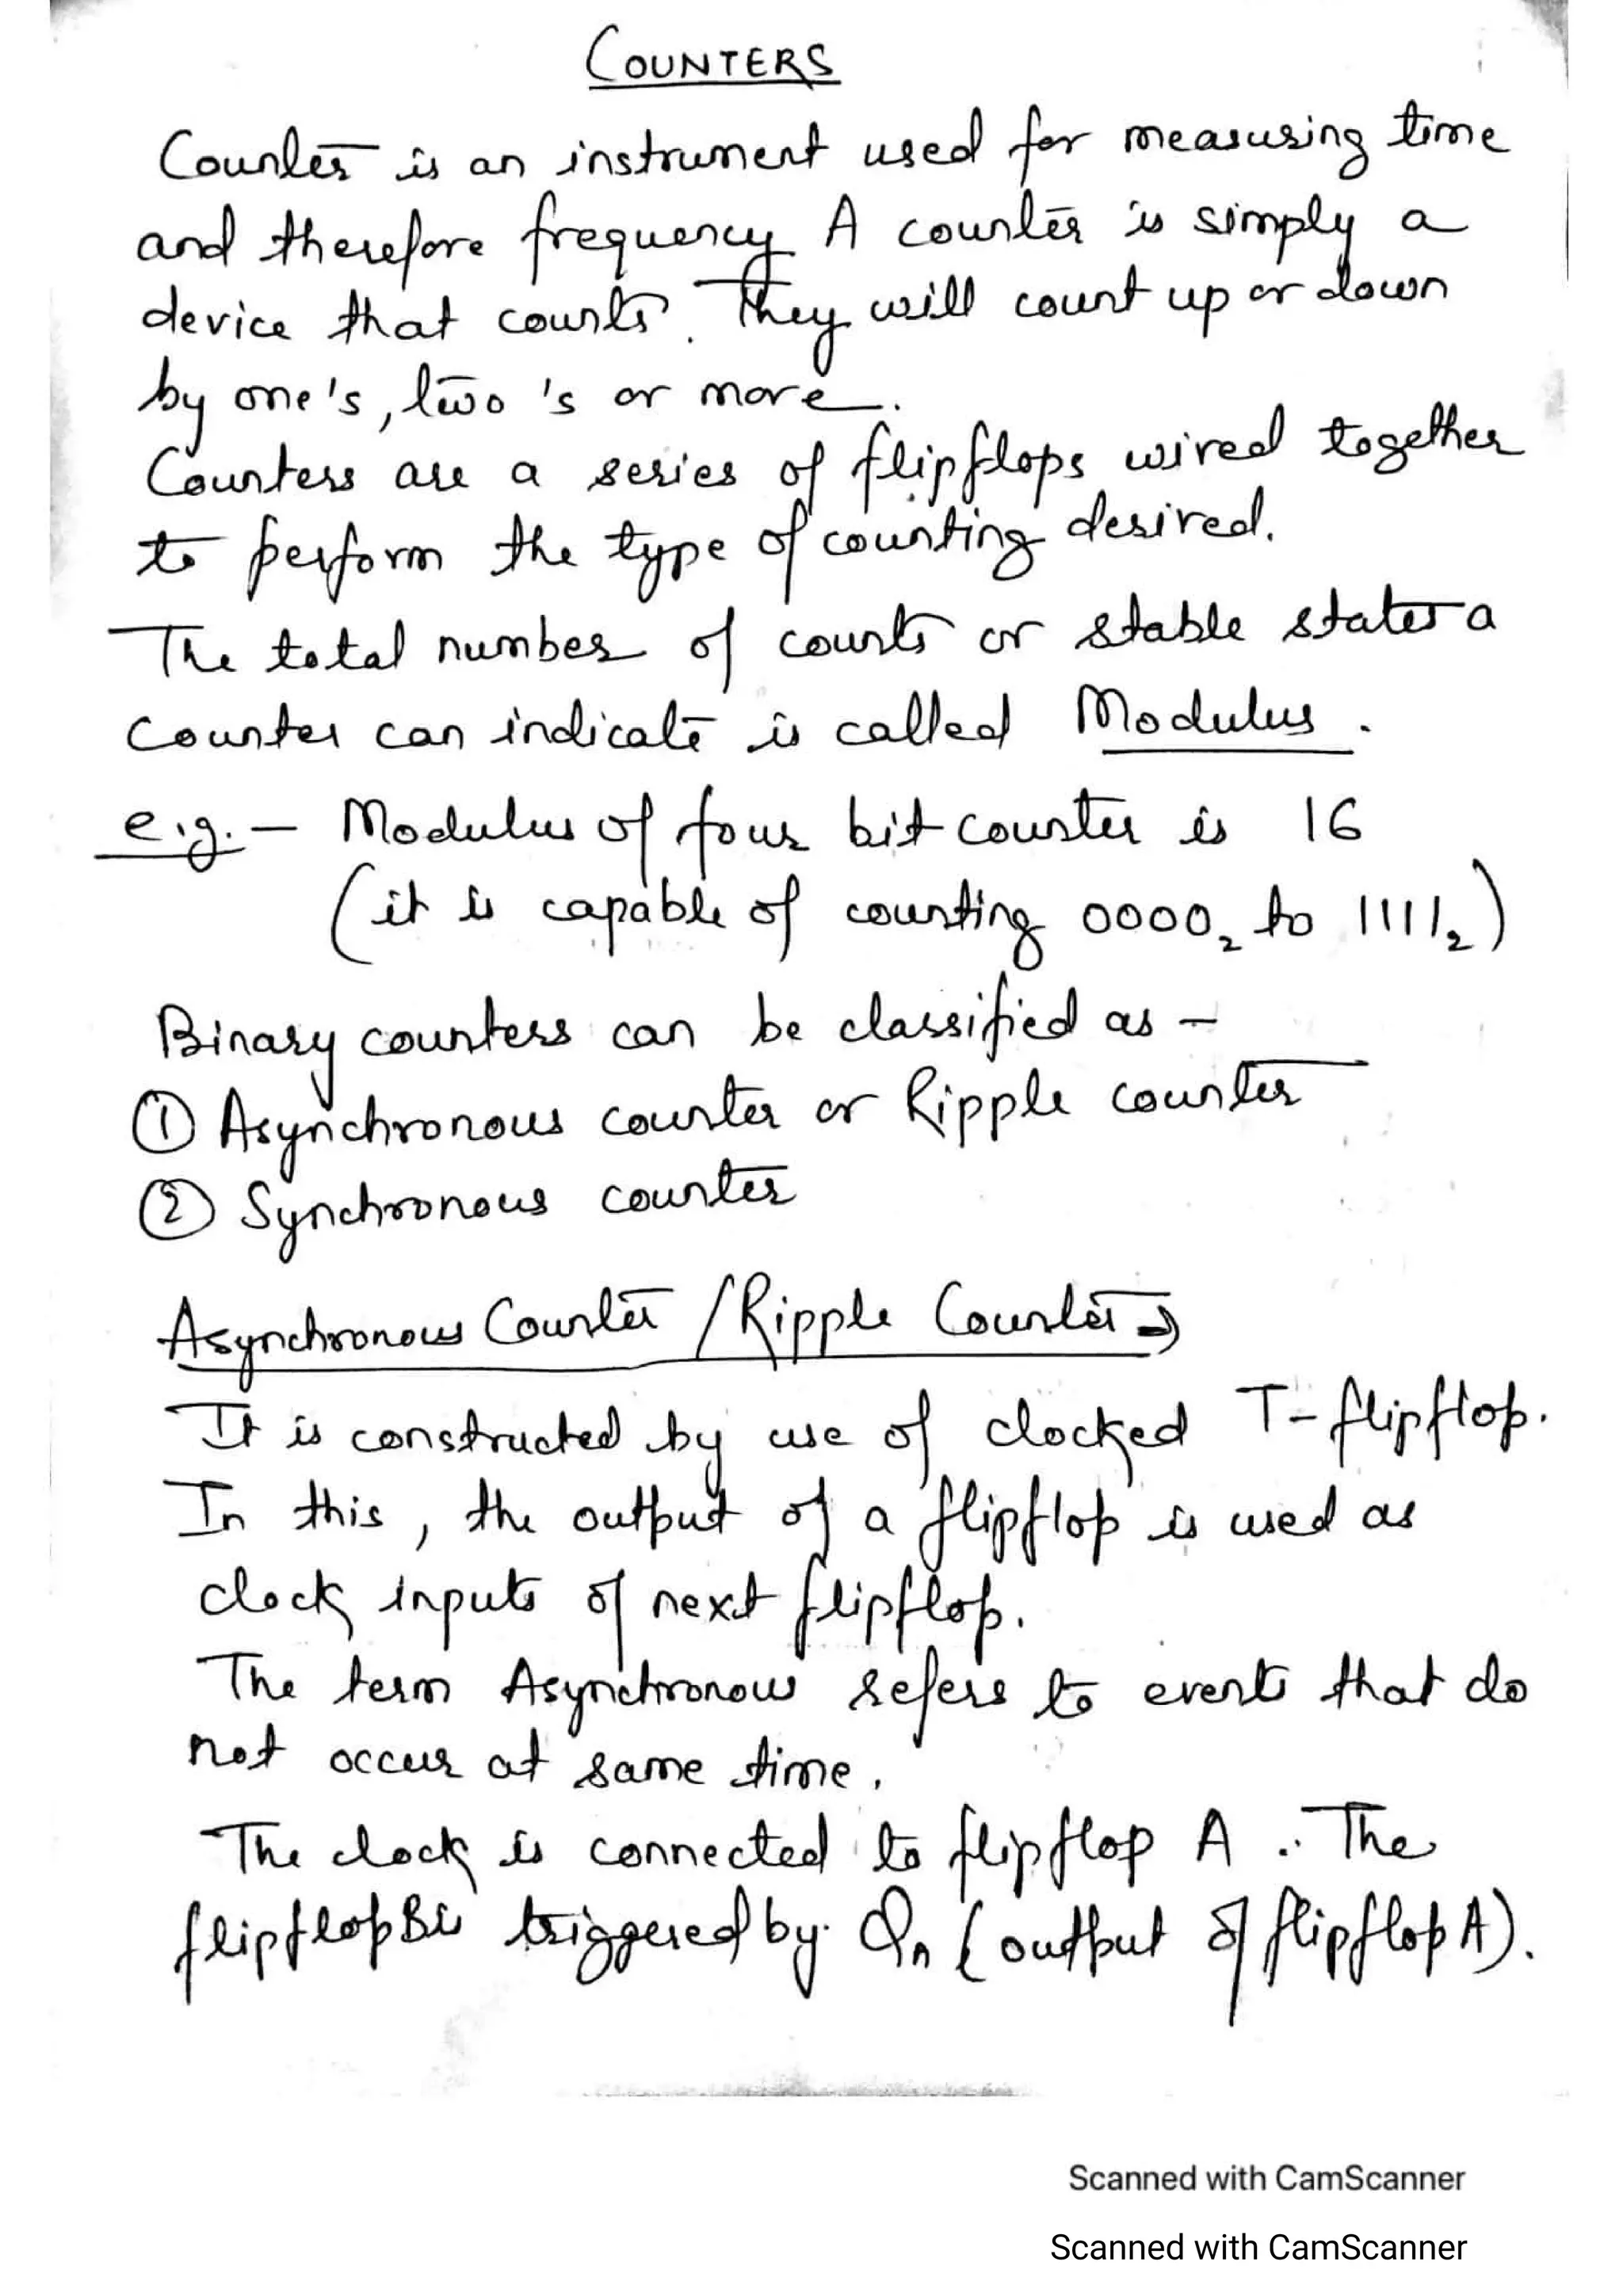 COUNTERS
Counter is an instrument used for measuring time
and therefore frequency A counter is simply a
device that counts. They will count up or down
by one's, two's or more.
Counters are a series of flipflops wired together
to perform the type of counting desired.
The total number of counts or stable states a
counter can indicate is called Modulus.
e.g. - Modulus of four bit counter is 16
(it is capable of counting 0000₂ to 1111₂)
Binary counters can be classified as -
① Asynchronous counter or Ripple counter
② Synchronous counter
Asynchronous Counter / Ripple Counter ⇒
It is constructed by use of clocked T-flipflop.
In this, the output of a flipflop is used as
clock inputs of next flipflop.
The term Asynchronous refers to events that do
not occur at same time.
The clock is connected to flipflop A. The
flipflop B is triggered by Qn (output of flipflop A).
Scanned with CamScanner
Scanned with CamScanner